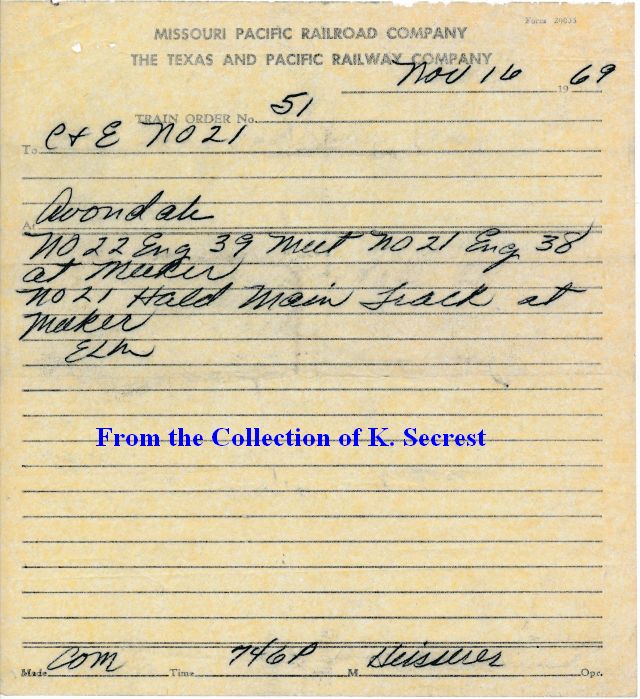 Form 20035
MISSOURI PACIFIC RAILROAD COMPANY
THE TEXAS AND PACIFIC RAILWAY COMPANY
Nov 16 1969
TRAIN ORDER No. 51
To C + E No 21
At Avondale
No 22 Eng 39 Meet No 21 Eng 38
at Meeker
No 21 Hold Main Track at
Meeker
ELM
From the Collection of K. Secrest
Made Com Time 746P M Heisserer Opr.